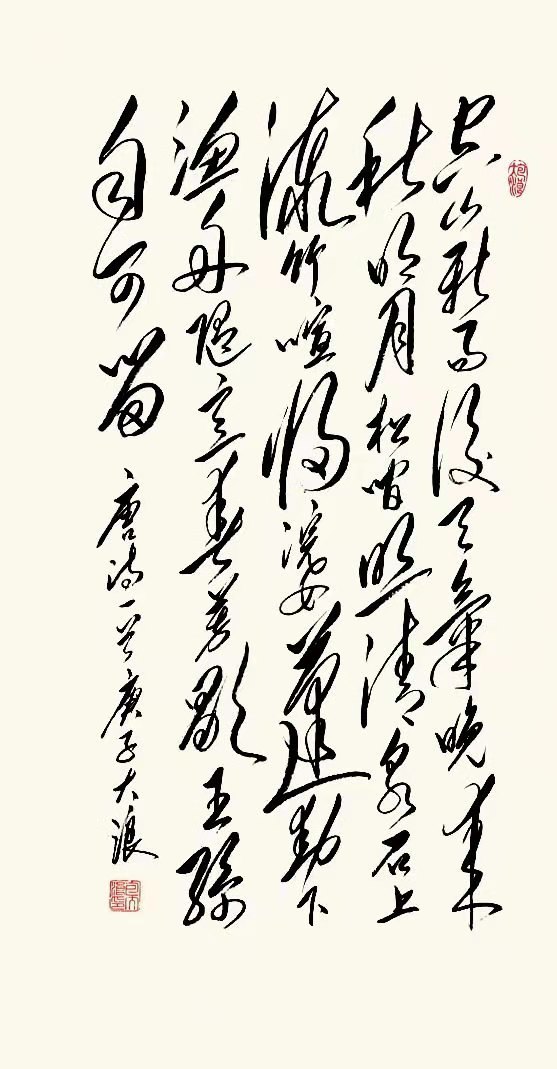 空山新雨後天氣晚來
秋明月松間照清泉石上
流竹喧歸浣女蓮動下
漁舟隨意春芳歇王孫
自可留
唐詩一首庚子大浪